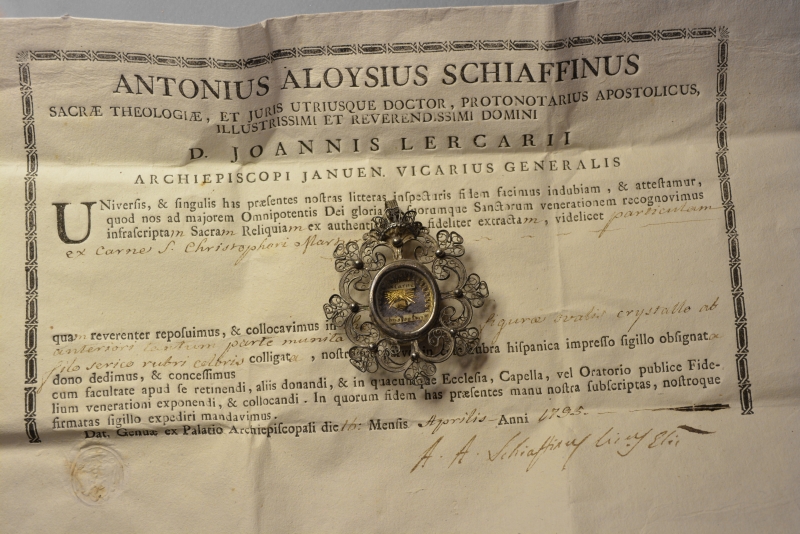 ANTONIUS ALOYSIUS SCHIAFFINUS
SACRÆ THEOLOGIÆ, ET JURIS UTRIUSQUE DOCTOR, PROTONOTARIUS APOSTOLICUS,
ILLUSTRISSIMI ET REVERENDISSIMI DOMINI
D. JOANNIS LERCARII
ARCHIEPISCOPI JANUEN. VICARIUS GENERALIS
UNiversis, & singulis has præsentes nostras litteras inspecturis fidem facimus indubiam, & attestamur,
quod nos ad majorem Omnipotentis Dei gloria suorumque Sanctorum venerationem recognovimus
infrascriptam Sacram Reliquiam ex authenti fideliter extractam, videlicet particulam
ex Carnes S. Christophori Mar
quam reverenter reposuimus, & collocavimus in figuræ ovalis crystallo ab
anteriori tantum parte munita
filo serico rubri coloris colligata, nostro rubra hispanica impresso sigillo obsignata
dono dedimus, & concessimus
cum facultate apud se retinendi, aliis donandi, & in quacunque Ecclesia, Capella, vel Oratorio publice Fide-
lium venerationi exponendi, & collocandi. In quorum fidem has præsentes manu nostra subscriptas, nostroque
firmatas sigillo expediri mandavimus.
Dat. Genuæ ex Palatio Archiepiscopali die Mensis Aprilis Anni 1795.
A. A. Schiaffinus